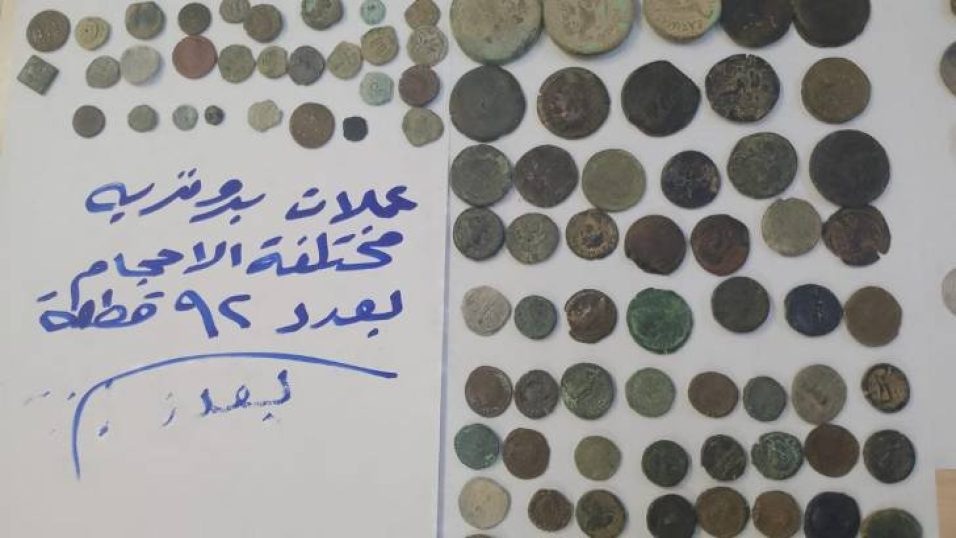 عملات برونزيه
مختلفة الاحجام
بعدد ٩٢ قطعة
بعدد